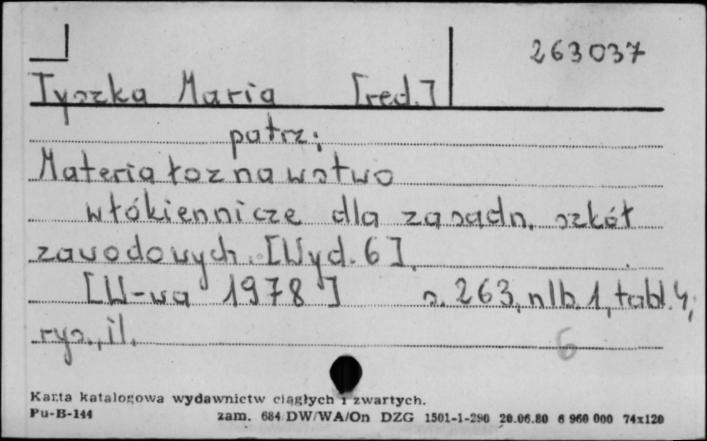 263037
Tyszka Maria [red.]
patrz:
Materiałoznawstwo
włókiennicze dla zasadn. szkół
zawodowych. [Wyd. 6].
[W-wa 1978] s. 263, nlb. 1, tabl. 4,
rys., il.
6
Karta katalogowa wydawnictw ciągłych i zwartych.
Pu-B-144 zam. 684/DW/WA/On DZG 1501-1-290 20.06.80 6 960 000 74x120